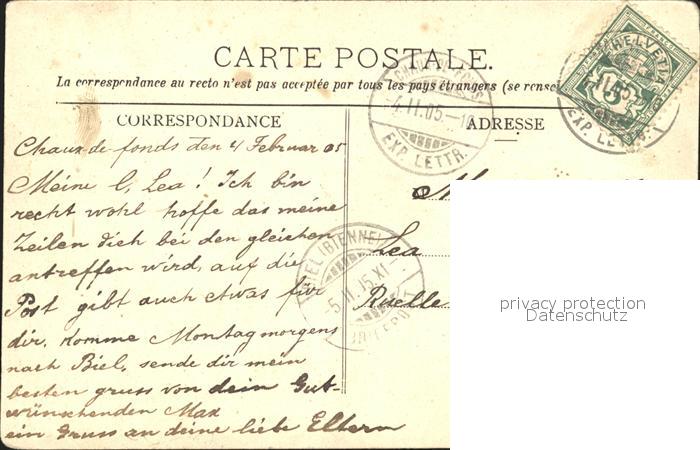 CARTE POSTALE.
La correspondance au recto n'est pas acceptée par tous les pays étrangers (se rense
CORRESPONDANCE
ADRESSE
HELVETIA
5
CHAUX-DE-FONDS
4.II.05.
EXP. LETTR.
II.05
EXP. LETTR.
BIEL (BIENNE)
5.II.05.XI
Chaux de-fonds den 4/Februar 05
Meine l. Lea! Ich bin
recht wohl hoffe das meine
Zeilen dich bei den gleichen
antreffen wird, auf die
Post gibt auch etwas für
dir, komme Montagmorgens
nach Biel, sende dir mein
besten gruss von dein Gut-
wünschenden Max
ein Gruss an deine liebe Eltern
Lea
Ruelle
privacy protection
Datenschutz